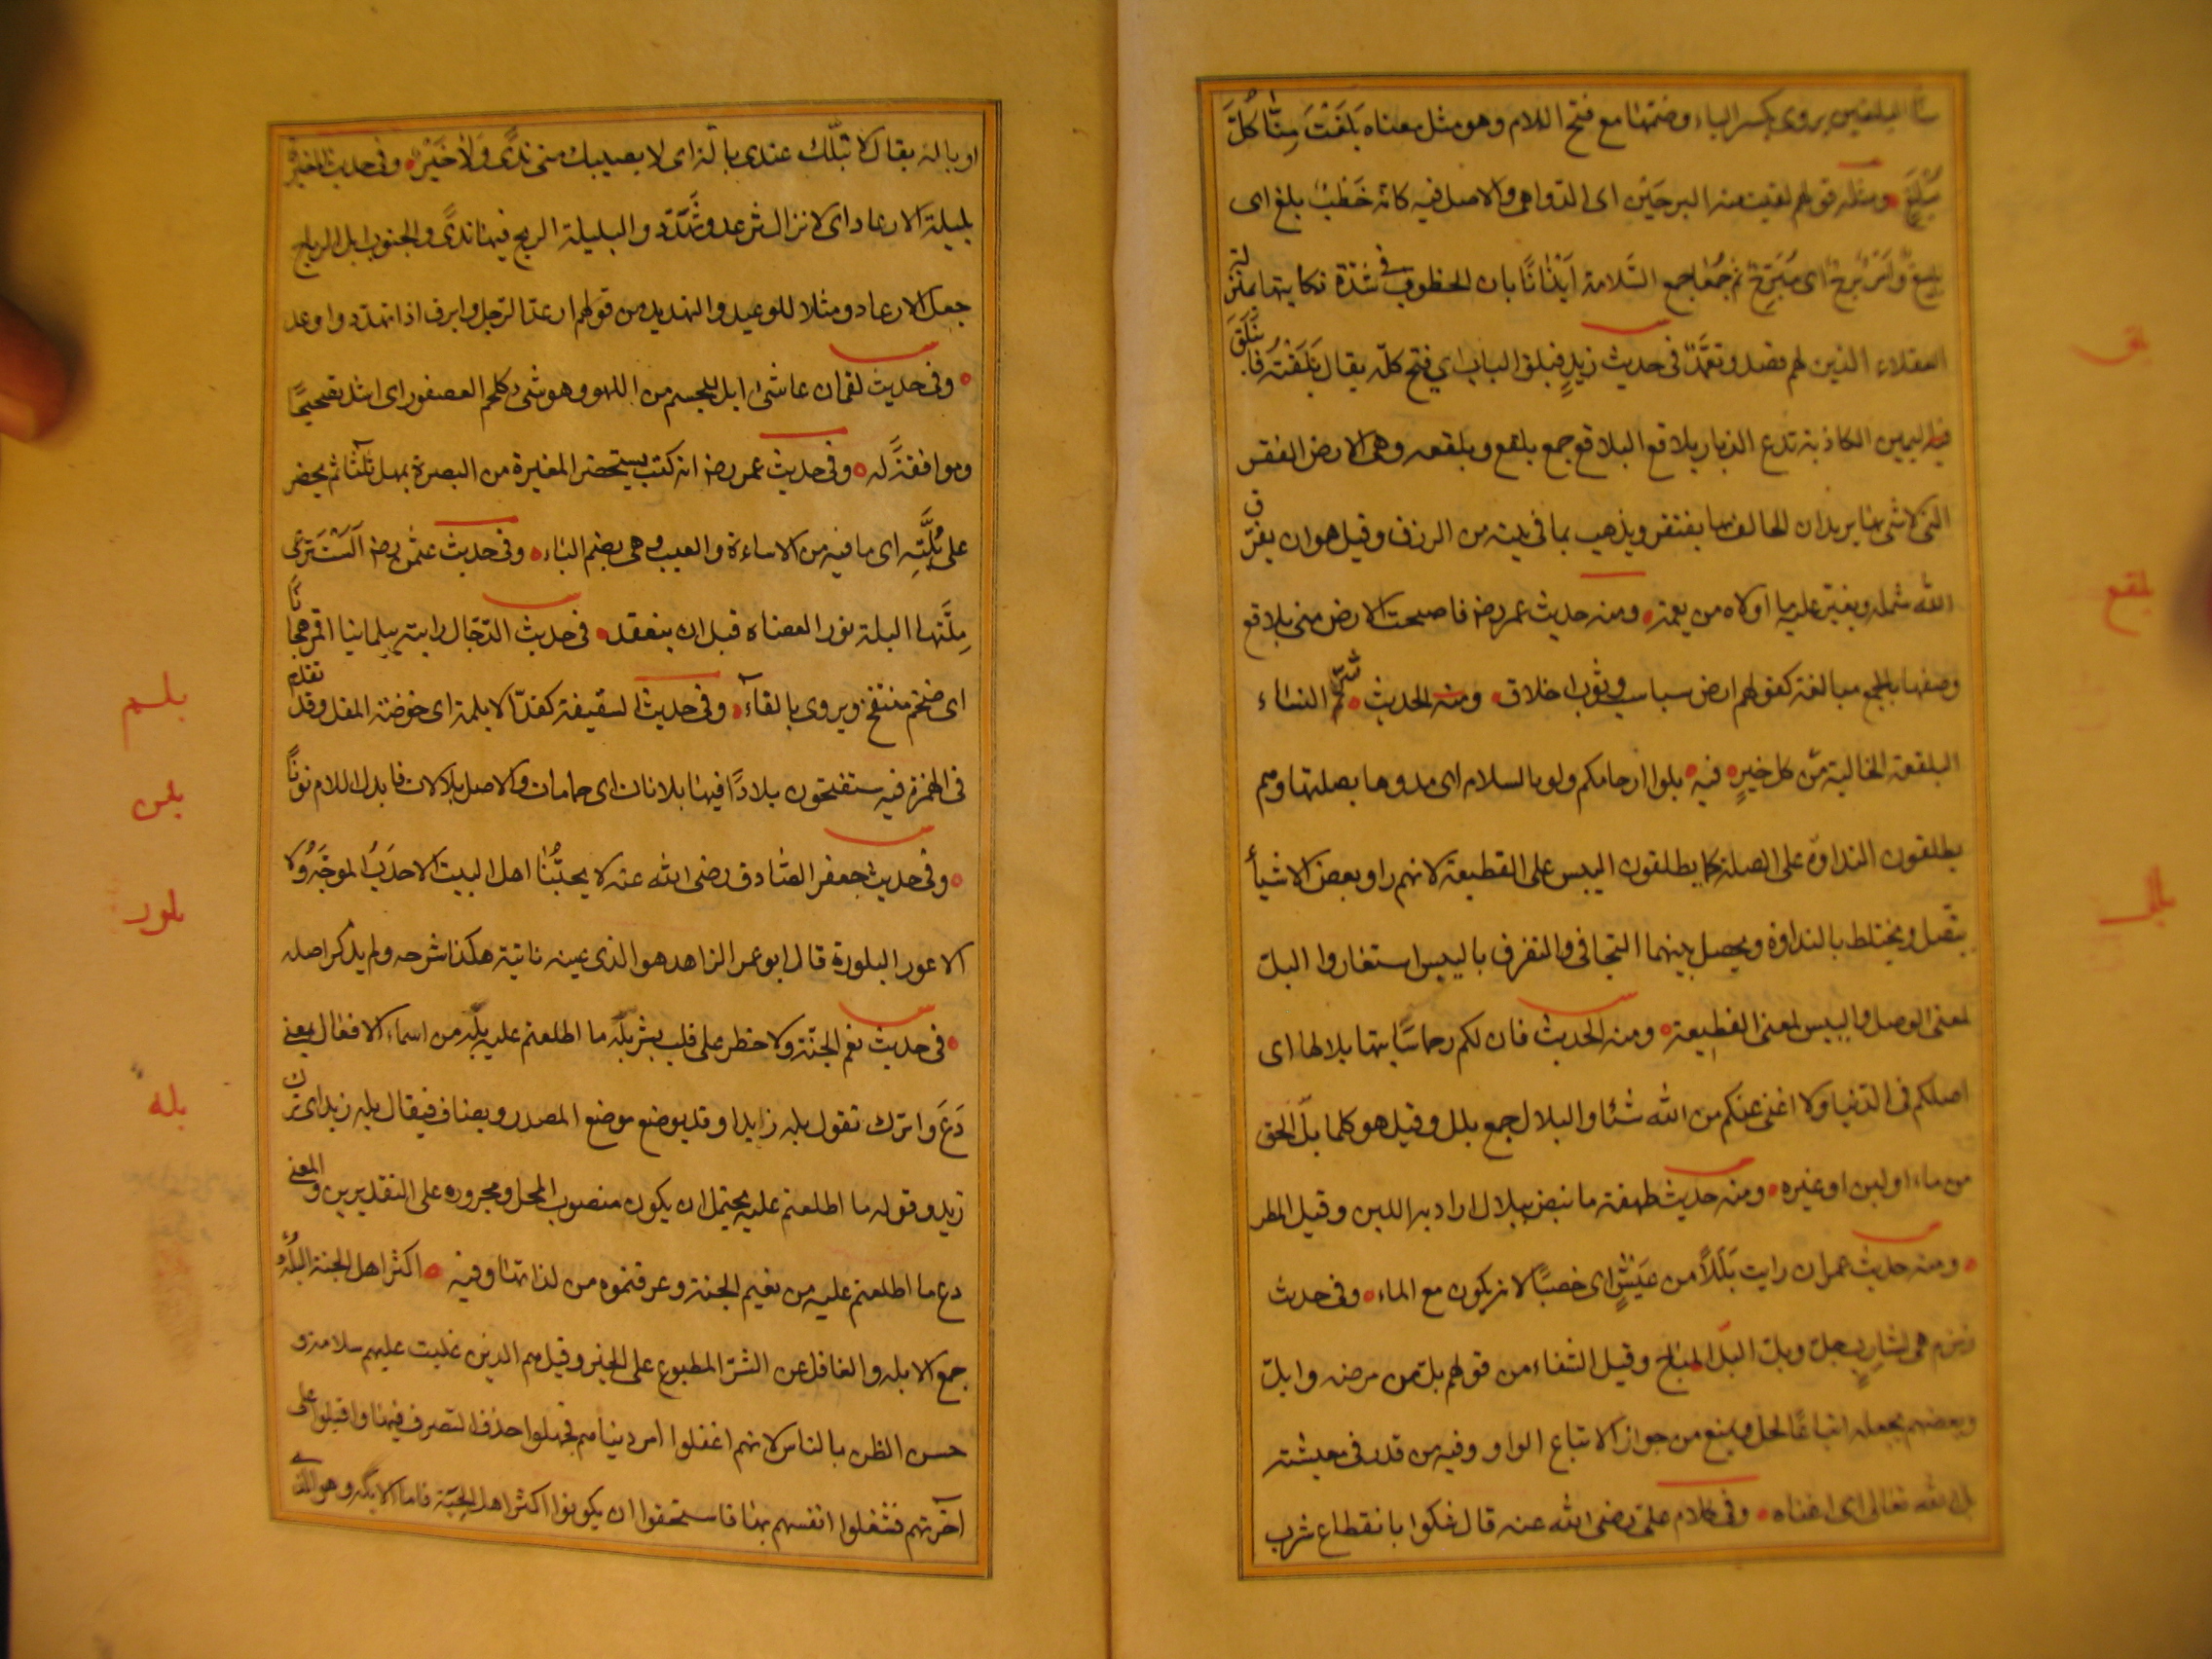 منا البلغين يروى بكسر الباء وضمتها مع فتح اللام وهو مثل معناه بَلَغْتَ مِنَّا كُلَّ
مَبْلَغٍ ومثله قولهم لقيت منه البرحَيْن اى الدواهى والاصل فيه كانه خَطْبٌ بلغ اى
بليغ وامْرٌ بَرْحٌ اى مُبَرِّحٌ ثم جُمعا جمع السَّلامة اَيذانًا بان الخطوب فى شدّة نكايتها بمنزلة
العقلاء الذين لهم قصد وتعمَّد فى حديث زيدٍ فبلق الباب اي فتح كلّه يقال بَلَقْتُه فانْبَلَقَ
فيه اليمين الكاذبة تدع الديار بلاقع البلاقع جمع بلقع وبلقعه وهى الارض القفر
التى لا شى بها يريد ان الحالف بها يفتقر ويذهب بما فى بيته من الرزق وقيل هو ان يفرّق
الله شمله ويغيّر عليه ما اولاه من نعمه ومنه حديث عمر رضه فاصبحت الارض منى بلاقع
وصفها بالجمع مبالغة كقولهم ارض سباسب وثوب اخلاق ومنه الحديث شرّ النساء
البلقعة الخالية من كل خير فيه بلوا ارحامكم ولو بالسلام اى مدوها بصلتها وهم
يطلقون النداوة على الصلة كما يطلقون اليبس على القطيعة لانهم راو بعض الاشيأ
يتصل ويختلط بالنداوة ويحصل بينهما التجافى والتفرق باليبس استعاروا البلّ
لمعنى الوصل واليبس لمعنى القطيعة ومنه الحديث فان لكم رحما سَأبلها ببلالها اى
اصلكم فى الدنيا ولا اغنى عنكم من الله شئا والبلال جمع بلل وقيل هو كلما بلّ الحق
من ماء او لبن او غيره ومنه حديث طهفة ما نبض ببلال اراد به اللبن وقيل المطر
ومنه حديث عمر ان رايت بَلَلًا من عَيْشٍ اى خصبًا لانه يكون مع الماء وفى حديث
زمزم هى لشاربٍ حلّ وبلّ البلّ المباح وقيل الشفاء من قولهم بلّ من مرضه وابلّ
وبعضهم يجعله اتباعًا لحل ويمنع من جواز الاتباع الواو وفيه من قدر فى معيشته
بلّه الله تعالى اى اغناه وفى كلام علىّ رضى الله عنه قال شكوا بانقطاع شرب
بلق
بلقع
بلل
او بالة يقال لا تبلّك عندى بالّة اى لا يصيبك منى ندًى ولا خَيْرٌ وفى حديث المغيرة
بليلة الارعاد اى لا تزال ترعد وتُهَدّد والبليلة الريح فيها ندًى والجنوب ابل الرياح
جعل الارعاد ومثلا للوعيد والتهديد من قولهم ارعد الرجل وابرق اذا تهدد واوعد
وفى حديث لقمان ما شئ ابل للجسم من اللهو وهو شى كلحم العصفور اى اشد تصحيحًا
وموافقةً له وفى حديث عمر رضه انه كتب يستحضر المغيرة من البصرة يمهل ثلثا ثم يحضر
على بُلَّتِه اى ما فيه من الاساءة والعيب وهى بضم الباء وفى حديث عثمن رضه اَلَسْتَ تَرعى
بلَّتها البلة نور العضاه قبل ان ينعقد فى حديث الدجّال رايته بيلمانيا اقمر هجانًا
اى ضخم منتفخ ويروى بالفآء وفى حديث السقيفة كقدّ الابلمة اى خوضة المقل وقد تقدم
فى الهمزة فيه ستفتحون بلادًا فيها بلانات اى حمامات والاصل بلالات فابدل اللام نونًا
وفى حديث جعفر الصّادق رضى الله عنه لا يحبُّنا اهل البيت الاحدَبُ الموجَّهُ ولا
الاعور البلورة قال ابو عمر الزاهد هو الذى عينه ناتية هكذا شرحه ولم يذكر اصله
فى حديث نعم الجنّة ولا خطر على قلب بشر بلّه ما اطلعتم عليه بلّه من اسماء الافعال بمعنى
دَعَ واترك تقول بله زايدا وقد يوضع موضع المصدر ويضاف فيقال بله زيد اى ترك
زيد وقوله ما اطلعتم عليه يحتمل ان يكون منصوب المحل ومجروره على التقديرين والمعنى
دع ما اطلعتم عليه من نعيم الجنة وعرفتموه من لذاتها وفيه اكثر اهل الجنة البُلْهُ
جمع الابله والغافل عن الشر المطبوع على الخير وقيل هم الذين غلبت عليهم سلامة و
حسن الظن بالناس لانهم اغفلوا امر دنياهم فجهلوا حذق التصرف فيها واقبلوا على
آخرتهم فشغلوا انفسهم بها فاستحقوا ان يكونوا اكثر اهل الجنّة فاما الابله وهو الذى
بلم
بلن
بلور
بله